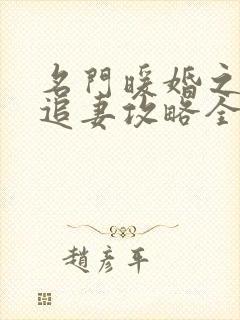 名門暖婚之
追妻攻略全
趙彥平